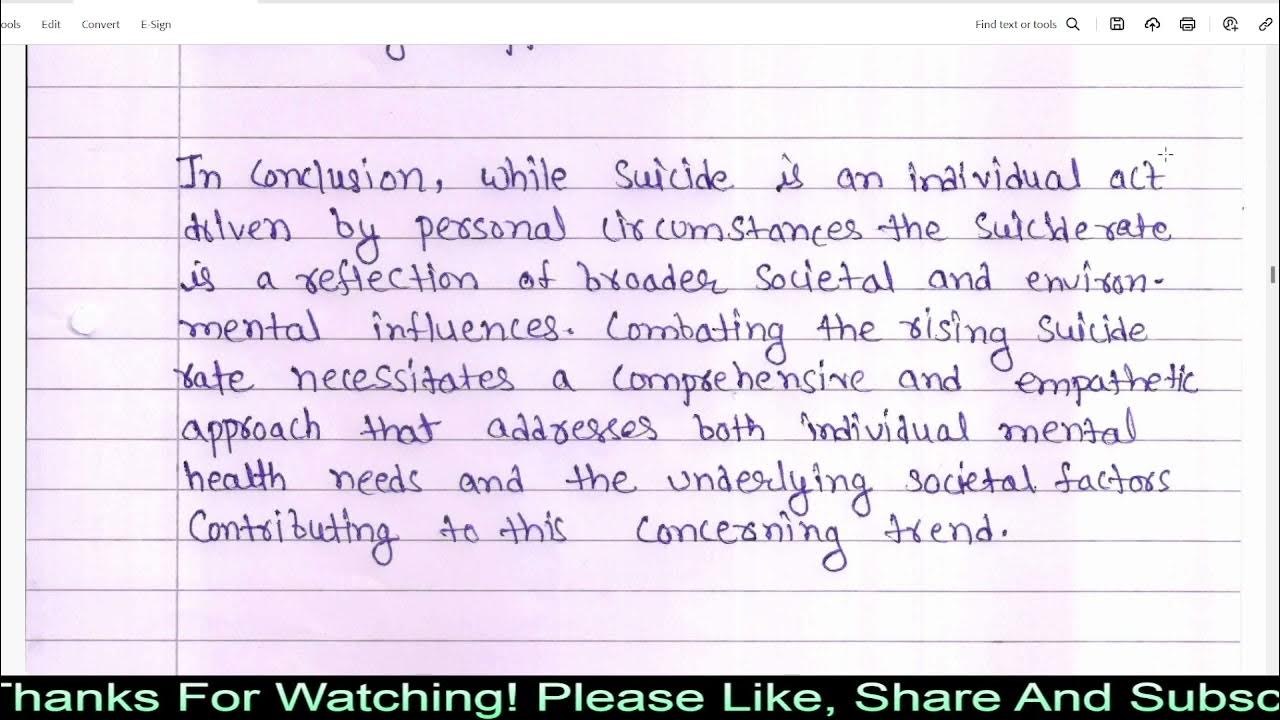 ools Edit Convert E-Sign Find text or tools
In Conclusion, while suicide is an individual act
driven by personal circumstances the suicide rate
is a reflection of broader societal and environ-
mental influences. Combating the rising suicide
rate necessitates a comprehensive and empathetic
approach that addresses both individual mental
health needs and the underlying societal factors
Contributing to this concerning trend.
Thanks For Watching! Please Like, Share And Subsc